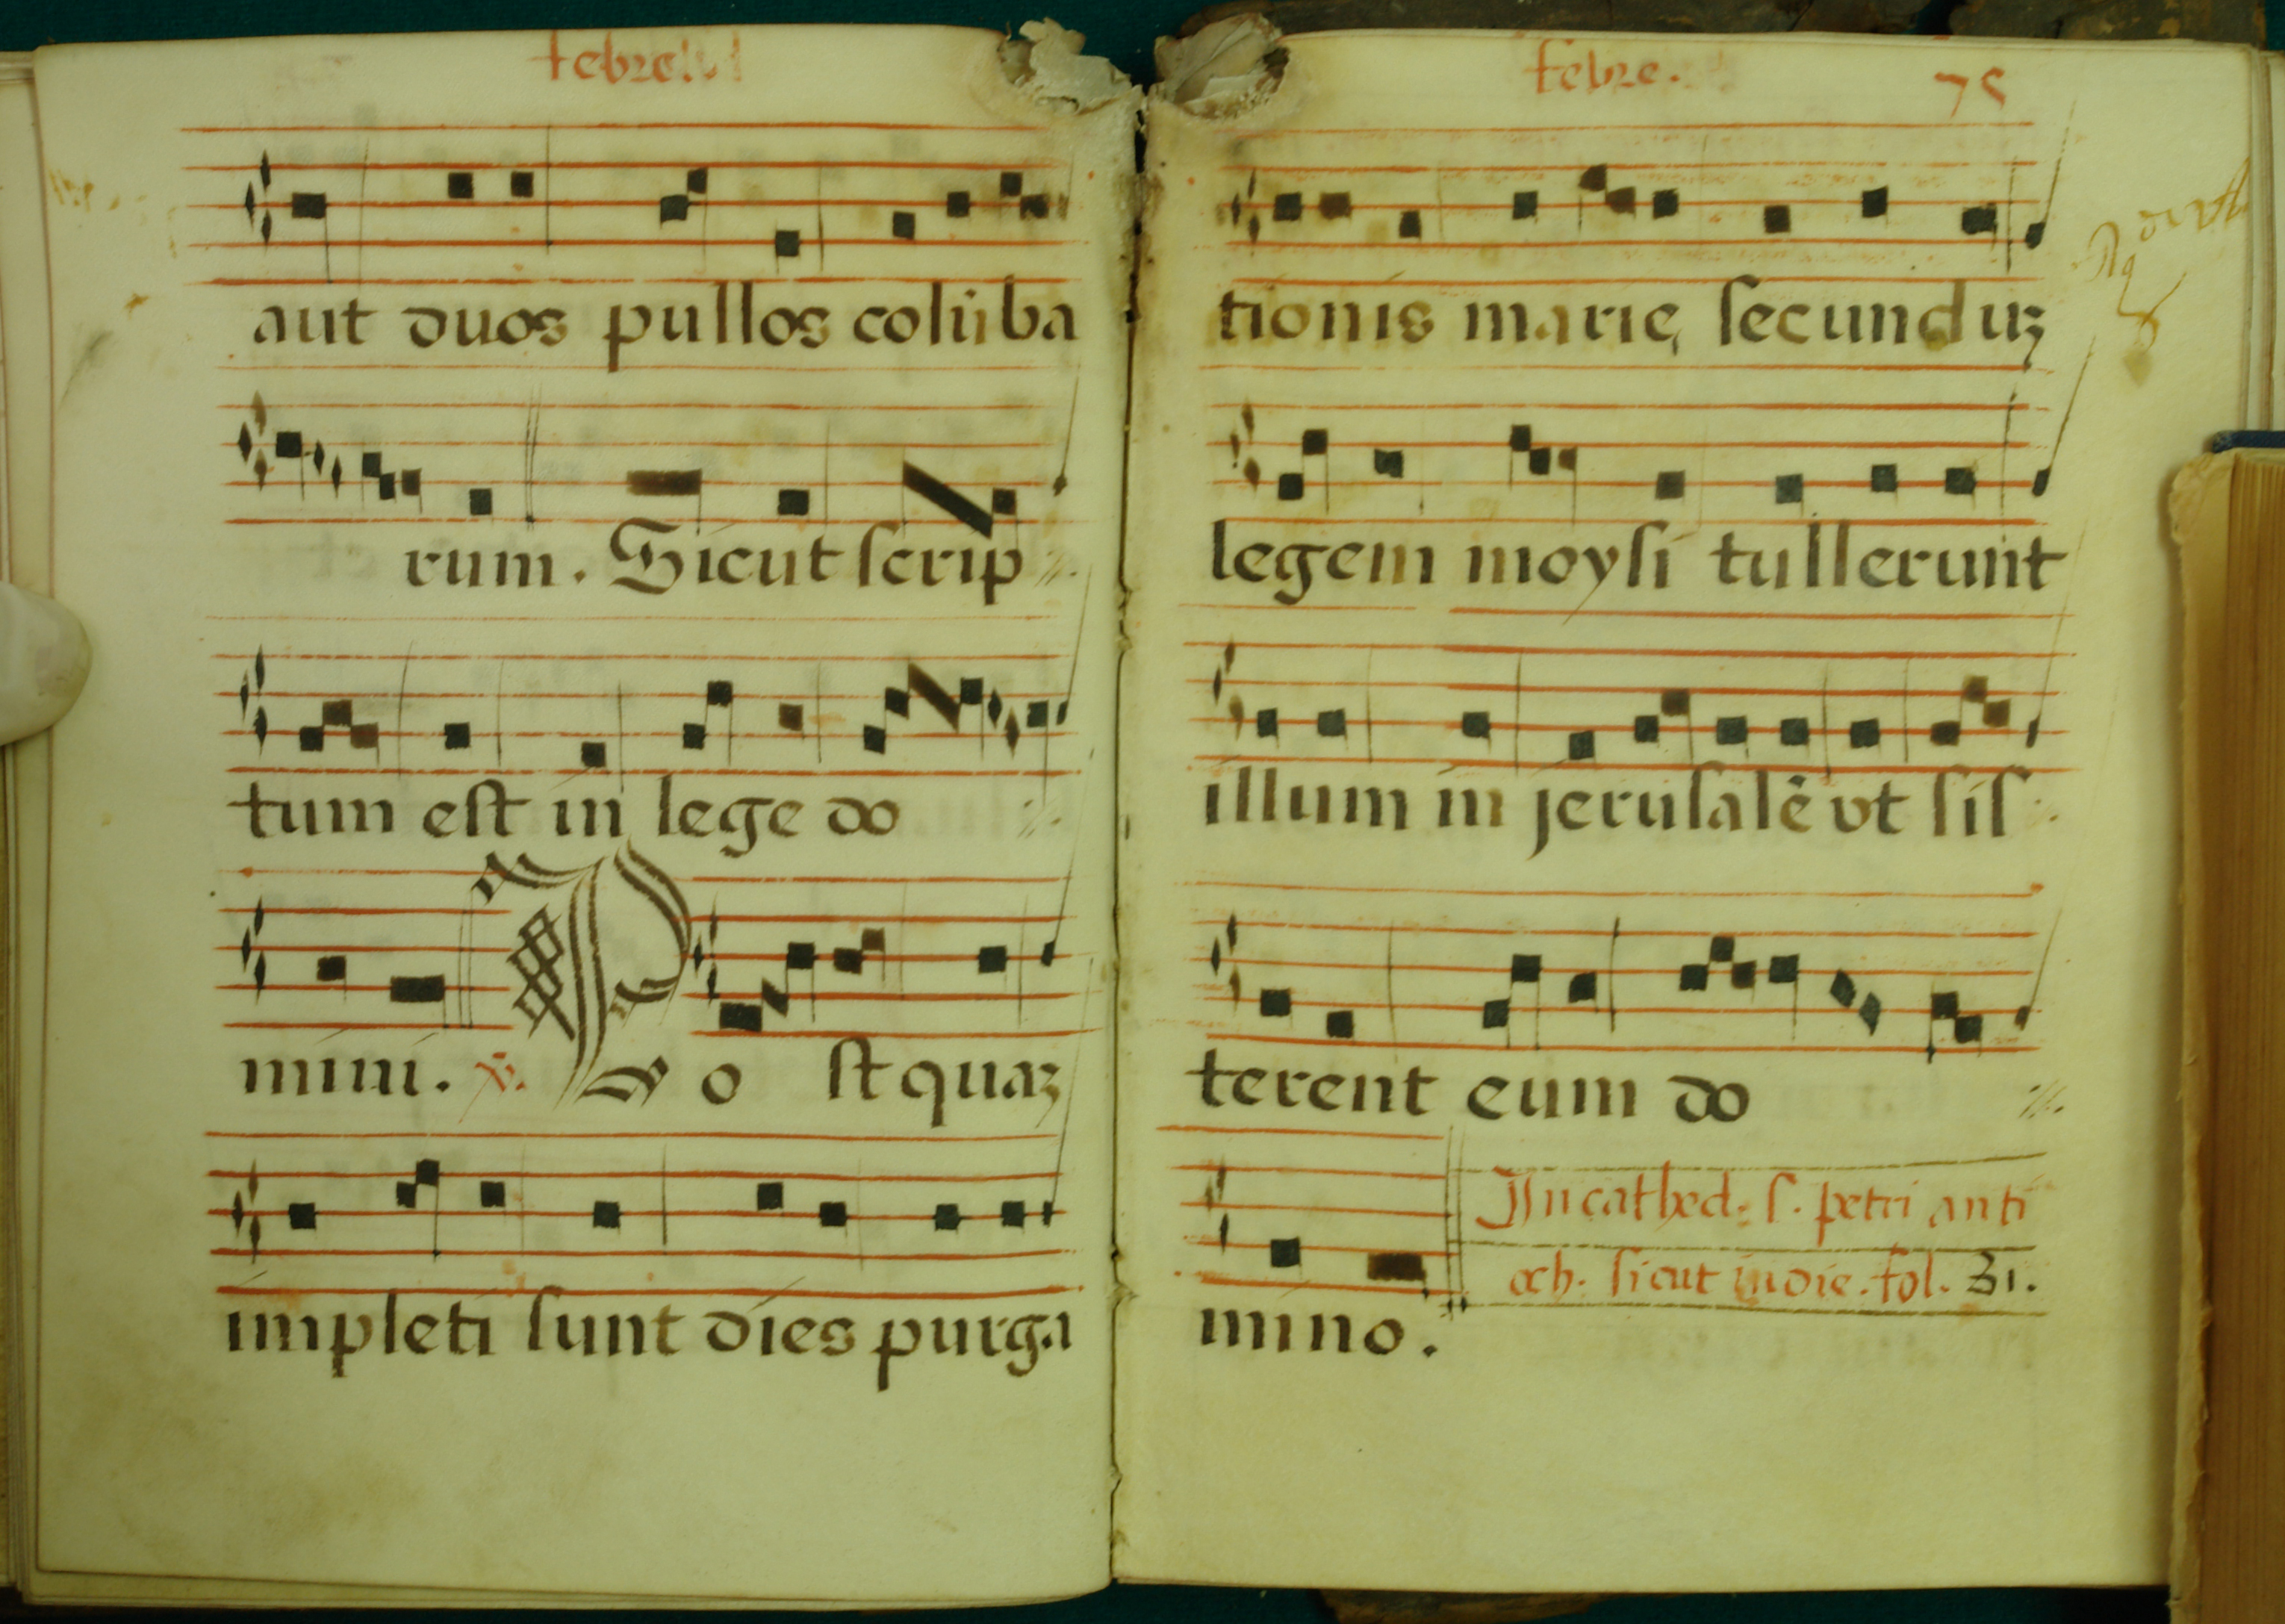 febre
aut duos pullos colūba
rum. Sicut scrip
tum est in lege do
mini. ℣. Po st quaꝫ
impleti sunt dies purga
febre. 75
tionis marię secunduꝫ
legem moysi tullerunt
illum in jerusalē vt sis
terent eum do
mino.
In cathed: s. petri anti
och. sicut in die. fol. 31.